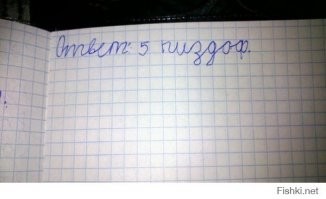 Ответ: 5 пиздоф.
Fishki.net